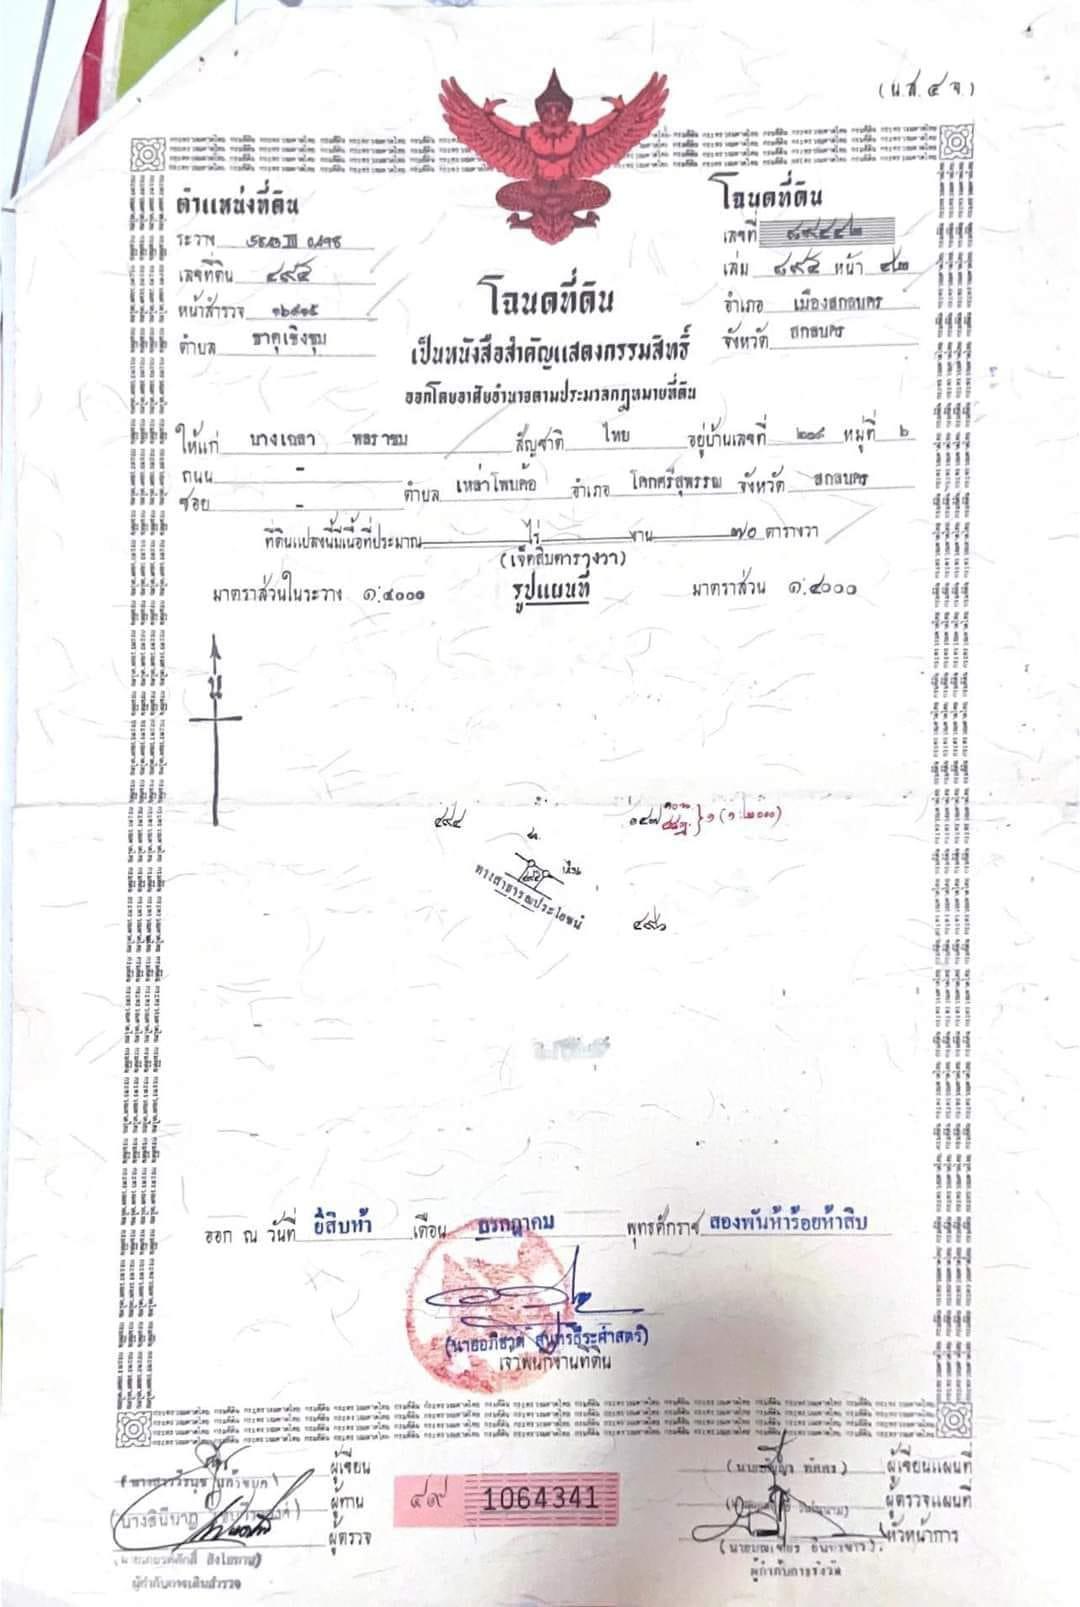 (น.ส. ๔ จ.)
ตำแหน่งที่ดิน
โฉนดที่ดิน
ระวาง
เลขที่
เลขที่ดิน ๔๙๕
เล่ม ๘๙๕ หน้า ๔๒
หน้าสำรวจ
อำเภอ เมืองสกลนคร
ตำบล ธาตุเชิงชุม
จังหวัด สกลนคร
โฉนดที่ดิน
เป็นหนังสือสำคัญแสดงกรรมสิทธิ์
ออกโดยอาศัยอำนาจตามประมวลกฎหมายที่ดิน
ให้แก่ พลราชม สัญชาติ ไทย อยู่บ้านเลขที่ ๒๑๙ หมู่ที่ ๖
ถนน -
ซอย - ตำบล เหล่าโพนค้อ อำเภอ โคกศรีสุพรรณ จังหวัด สกลนคร
ที่ดินแปลงนี้มีเนื้อที่ประมาณ ไร่ งาน ๗๐ ตารางวา
(เจ็ดสิบตารางวา)
มาตราส่วนในระวาง ๑:๔๐๐๐ รูปแผนที่ มาตราส่วน ๑:๔๐๐๐
น
๔๙๔
๔๙๕
ทางสาธารณประโยชน์
๔๙๖
ออก ณ วันที่ ยี่สิบห้า เดือน กรกฎาคม พุทธศักราช สองพันห้าร้อยห้าสิบ
เจ้าพนักงานที่ดิน
ผู้เขียน
ผู้ทาน
ผู้ตรวจ
ผู้กำกับการเดินสำรวจ
๔๙ 1064341
ผู้เขียนแผนที่
ผู้ตรวจแผนที่
หัวหน้าการ
ผู้กำกับการรังวัด